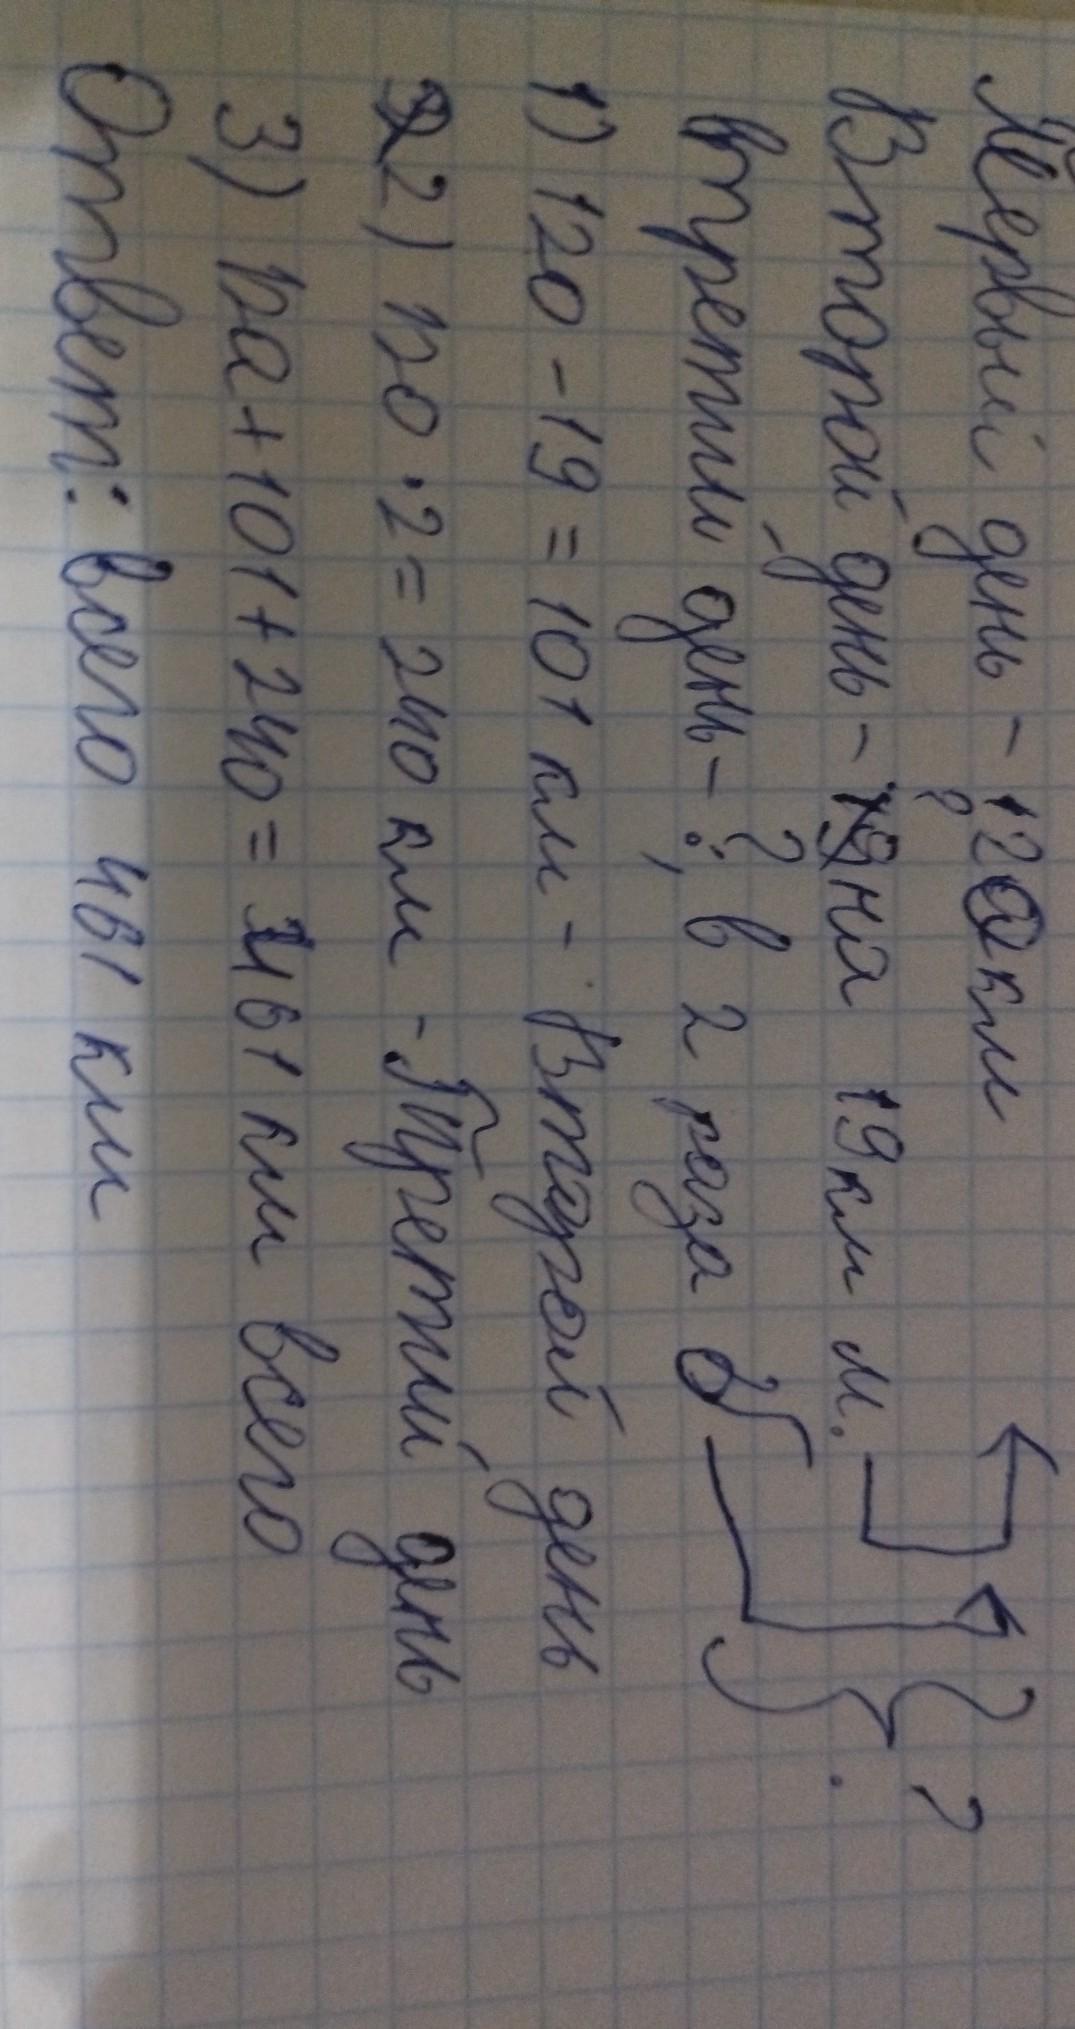 Первый день - 120 км
Второй день - ? на 19 км м.
В третий день - ?, в 2 раза б
?
1) 120 - 19 = 101 км - Второй день
2) 120 · 2 = 240 км - Третий день
3) 120 + 101 + 240 = 461 км всего
Ответ: всего 461 км